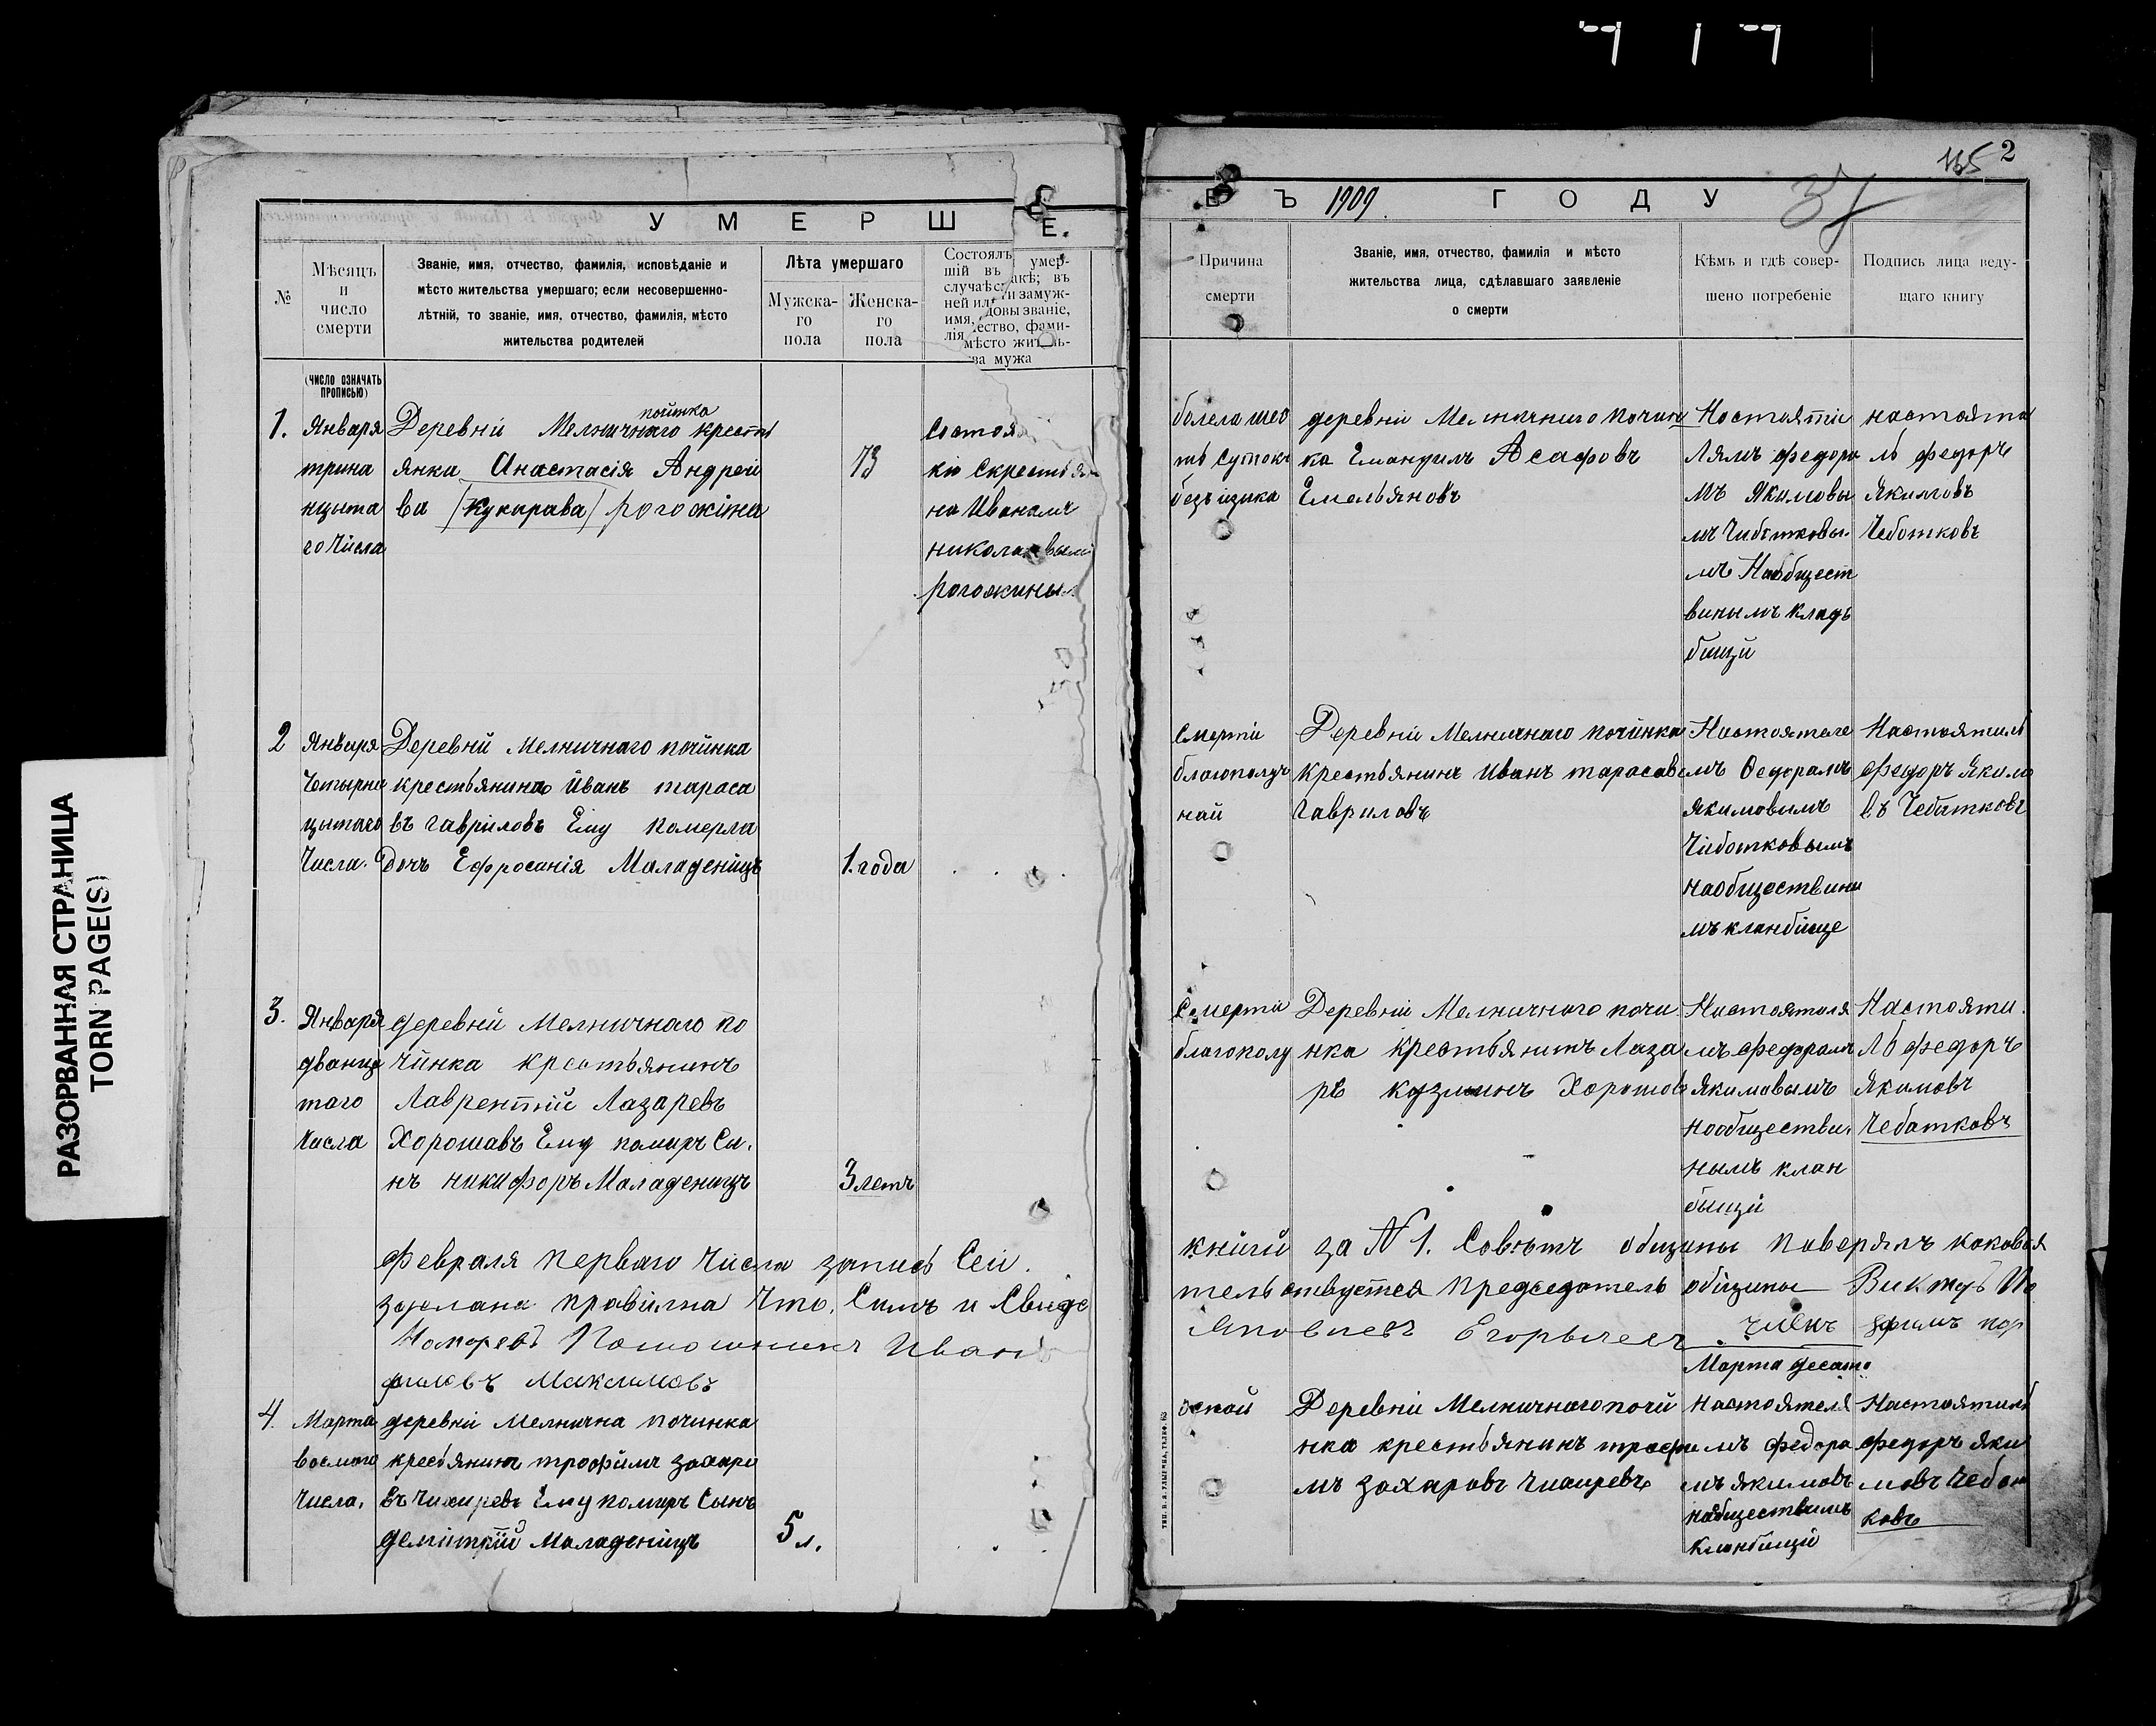 165 2
37
УМЕРШ Е.
ВЪ 1909. ГОДУ
№
Мѣсяцъ
и
число
смерти
Званіе, имя, отчество, фамилія, исповѣданіе и
мѣсто жительства умершаго; если несовершенно-
лѣтній, то званіе, имя, отчество, фамилія, мѣсто
жительства родителей
Лѣта умершаго
Мужска-
го
пола
Женска-
го
пола
Состоялъ умер-
шій въ акѣ; въ
случаѣ с
ней ил ги замуж-
имя, довы званіе,
ество, фами-
лія мѣсто жи ль-
ва мужа
Причина
смерти
Званіе, имя, отчество, фамилія и мѣсто
жительства лица, сдѣлавшаго заявленіе
о смерти
Кѣмъ и гдѣ совер-
шено погребеніе
Подпись лица веду-
щаго книгу
(ЧИСЛО ОЗНАЧАТЬ
ПРОПИСЬЮ)
1.
Января
трина
цыта
го числа
Деревни Мелничнаго крестья
янка Анастасія Андрей
ва /Кукарава/ рогожина
73
Состоя
на Иваномъ
николаевым
рогожины
болела шес
ть сутокъ
безъ
деревни Мелничнаго почин
ка Емануилъ Асафовъ
Емельяновъ
Настояти
Лямъ федоро
мъ Якимовы
мъ Чиботковы
мъ На общест
винымъ кладь
бищи
настояте
ль федоръ
Якимовъ
Чеботковъ
2
Января
Четырна
цытаго
Числа.
Деревни Мелничнаго починка
крестьянина Иванъ тараса
въ гавриловъ Ему померла
дочъ Ефросинія Маладеницъ
1. года
Смертіи
благополуч
най
Деревни Мелничнаго починка
Крестьянинъ Иванъ тарасав
Гавриловъ
Настоятеле
мъ Федорамъ
якимовимъ
Чиботковымъ
наобществини
мъ кланбище
Настоятиль
федоръ Якимо
въ Чебатковъ
3.
Января
дванца
таго
Числа
деревни Мелничнаго по
чинка крестьянинъ
Лаврентий Лазаревъ
Хорошавъ Ему помиръ Сы.
нъ никифоръ Маладеницъ
3 летъ
Смерти
благополу
Деревни Мелничнаго почи
нка крестьянинъ Лаза
ръ козминъ Хорошов
Настоятеля
мъ федорамъ
Якимовымъ
Нообществи.
нымъ клан
бищи
Настояти.
ль федоръ
Якимовъ
Чебатковъ
февраля перваго числа запись Сей.
книги за N 1. Советъ общины поверялъ каковая
зделана правилна Что. Симъ и Свиде
тельствуется председатель общины Виктуръ
Помошникъ Иванъ
Яковлевъ Егорычевъ. член
филовъ Максимовъ
Марта десято
4.
Марта
восмого
числа.
деревни Мелнична починка
кресьянинъ трофимъ захаро
въ Чикиревъ Ему помиръ Сынъ
демитрий Маладеницъ
5 л.
оспой
Деревни Мелничнаго почи
нка крестьянинъ трофи
мъ захаровъ
Настоятеля
мъ федоро
мъ якимовъ
наобществимъ
Кланбищи
Настоятиль
федоръ яки
мовъ Чебот
ковъ
РАЗОРВАННАЯ СТРАНИЦА
TORN PAGE(S)